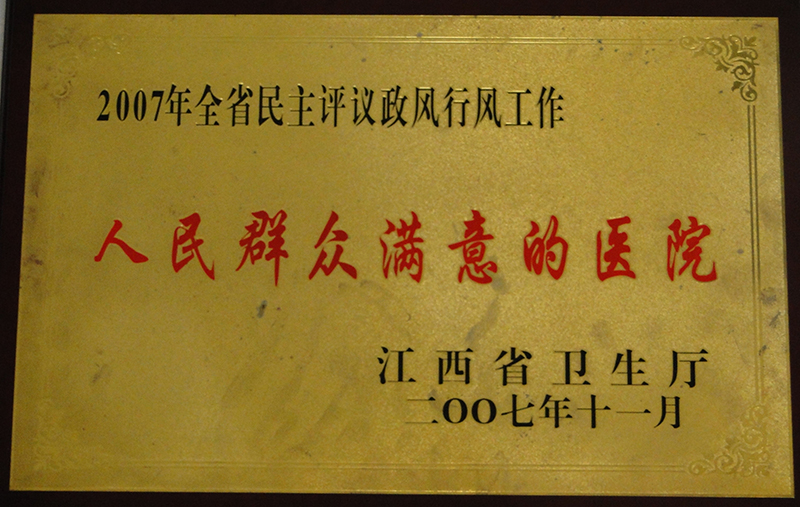 2007年全省民主评议政风行风工作
人民群众满意的医院
江西省卫生厅
二OO七年十一月